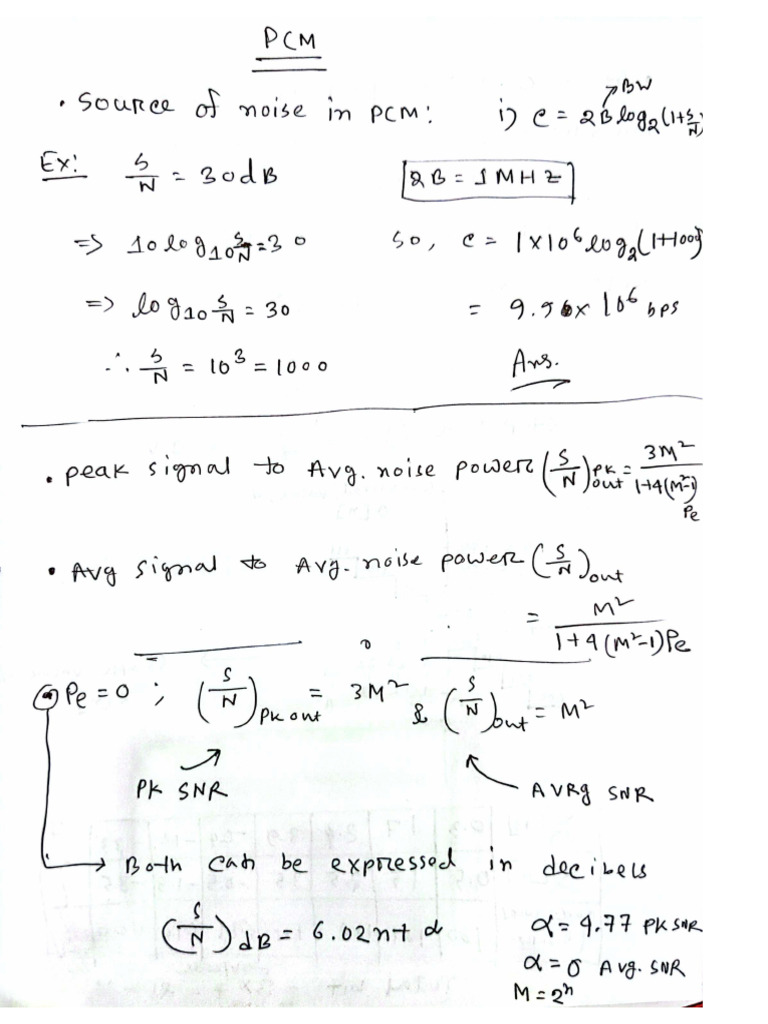 PCM
• Source of noise in PCM: i) C = 2B log₂(1+S/N)
BW
Ex: S/N = 30dB
2B = 1 MHZ
=> 10 log₁₀ S/N = 30 so, C = 1×10⁶ log₂(1+1000)
=> log₁₀ S/N = 30 = 9.96 × 10⁶ bps
∴ S/N = 10³ = 1000 Ans.
• peak signal to Avg. noise power (S/N)pk out = 3M²/1+4(M²-1)Pe
• Avg signal to Avg. noise power (S/N)out
= M²/1+4(M²-1)Pe
Pe = 0 ; (S/N)Pk out = 3M² & (S/N)out = M²
PK SNR AVRg SNR
→ Both can be expressed in decibels
(S/N)dB = 6.02n + α α = 4.77 PK SNR
α = 0 Avg. SNR
M = 2ⁿ